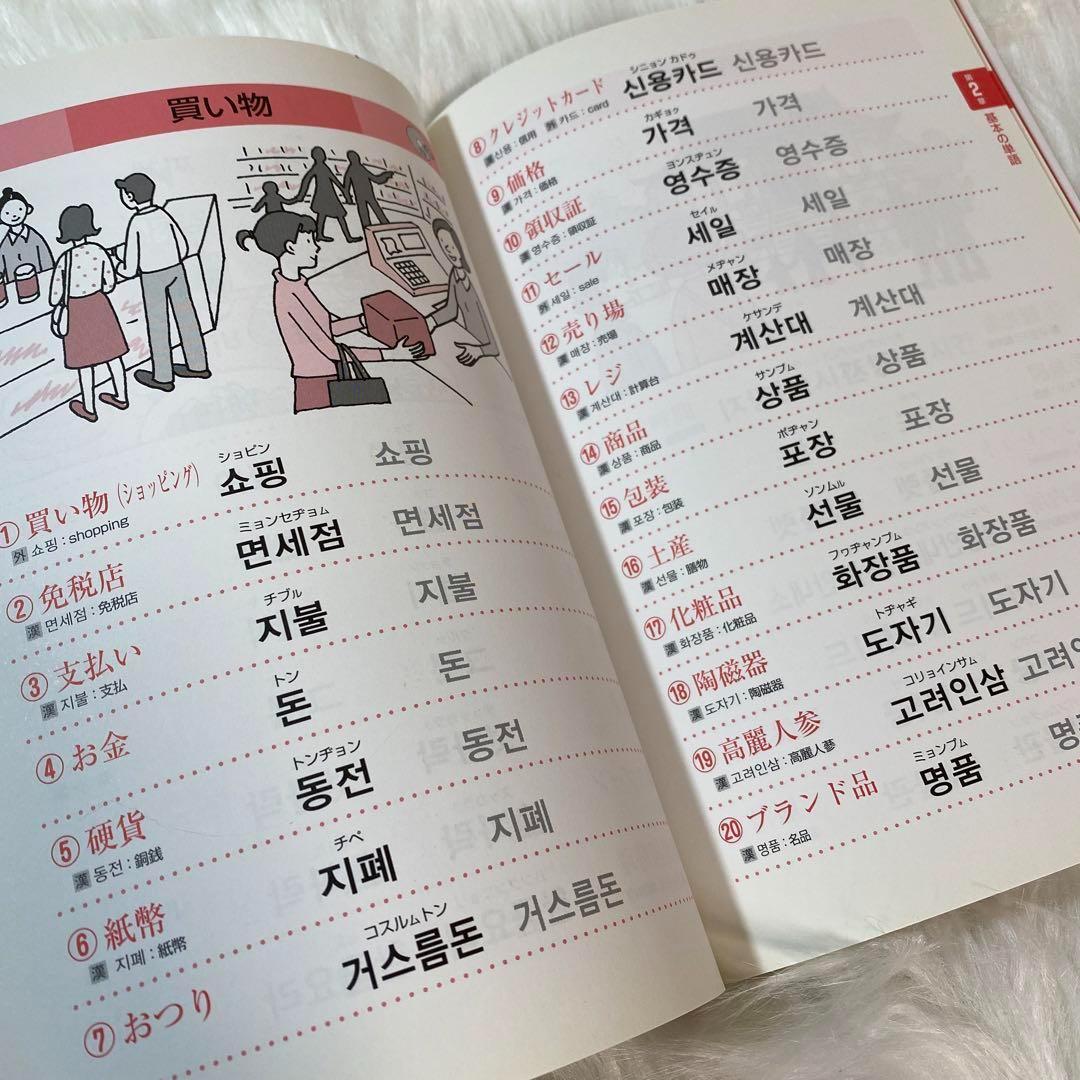 買い物
ショピン
① 買い物(ショッピング) 쇼핑 쇼핑
外 쇼핑 : shopping
ミョンセヂョム
② 免税店 면세점 면세점
漢 면세점 : 免税店
チブル
③ 支払い 지불 지불
漢 지불 : 支払
トン
④ お金 돈 돈
トンヂョン
⑤ 硬貨 동전 동전
漢 동전 : 銅銭
チペ
⑥ 紙幣 지폐 지폐
漢 지폐 : 紙幣
コスルムトン
⑦ おつり 거스름돈 거스름돈
シニョン カドゥ
⑧ クレジットカード 신용카드 신용카드
漢 신용 : 信用 外 카드 : card
カギョク
⑨ 価格 가격 가격
漢 가격 : 価格
ヨンスヂュン
⑩ 領収証 영수증 영수증
漢 영수증 : 領収証
セイル
⑪ セール 세일 세일
外 세일 : sale
メヂャン
⑫ 売り場 매장 매장
漢 매장 : 売場
ケサンデ
⑬ レジ 계산대 계산대
漢 계산대 : 計算台
サンプム
⑭ 商品 상품 상품
漢 상품 : 商品
ポヂャン
⑮ 包装 포장 포장
漢 포장 : 包装
ソンムル
⑯ 土産 선물 선물
漢 선물 : 膳物
フヮヂャンプム
⑰ 化粧品 화장품 화장품
漢 화장품 : 化粧品
トヂャギ
⑱ 陶磁器 도자기 도자기
漢 도자기 : 陶磁器
コリョインサム
⑲ 高麗人参 고려인삼 고려인
漢 고려인삼 : 高麗人蔘
ミョンプム
⑳ ブランド品 명품 명
漢 명품 : 名品
第2章 基本の単語